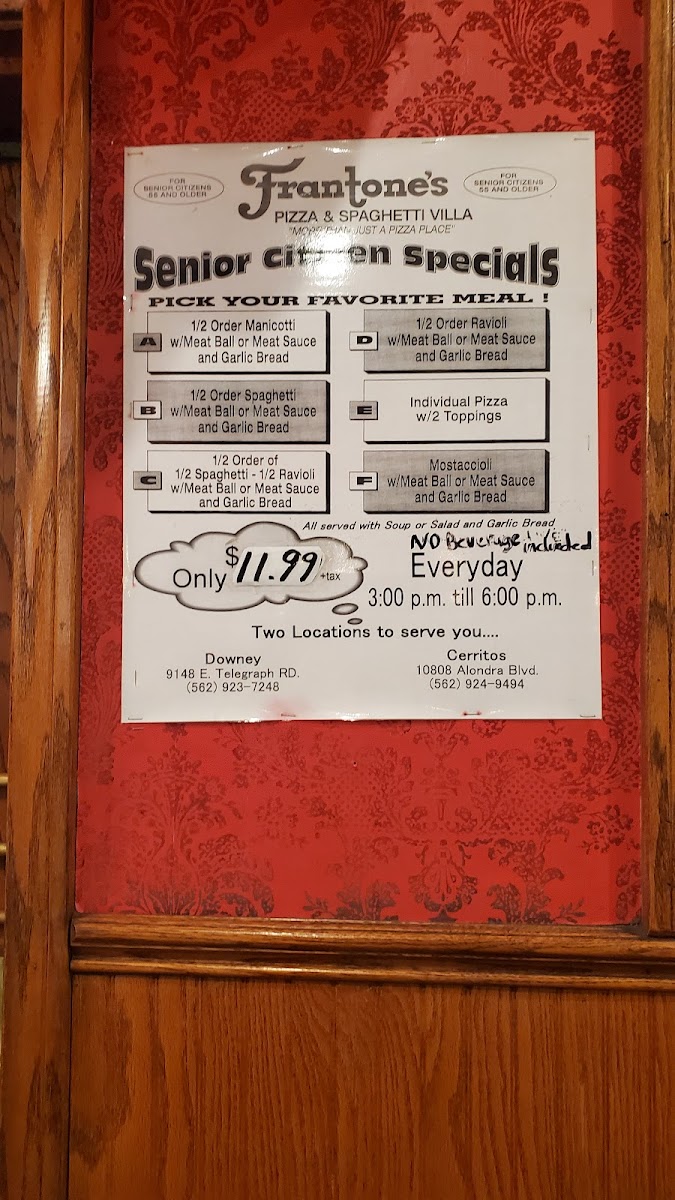 FOR
SENIOR CITIZENS
55 AND OLDER
Frantone's
FOR
SENIOR CITIZENS
55 AND OLDER
PIZZA & SPAGHETTI VILLA
"MORE THAN JUST A PIZZA PLACE"
Senior Citizen Specials
PICK YOUR FAVORITE MEAL !
A
1/2 Order Manicotti
w/Meat Ball or Meat Sauce
and Garlic Bread
D
1/2 Order Ravioli
w/Meat Ball or Meat Sauce
and Garlic Bread
B
1/2 Order Spaghetti
w/Meat Ball or Meat Sauce
and Garlic Bread
E
Individual Pizza
w/2 Toppings
C
1/2 Order of
1/2 Spaghetti - 1/2 Ravioli
w/Meat Ball or Meat Sauce
and Garlic Bread
F
Mostaccioli
w/Meat Ball or Meat Sauce
and Garlic Bread
All served with Soup or Salad and Garlic Bread
NO Beverage included
Only $11.99 +tax
Everyday
3:00 p.m. till 6:00 p.m.
Two Locations to serve you....
Downey
9148 E. Telegraph RD.
(562) 923-7248
Cerritos
10808 Alondra Blvd.
(562) 924-9494